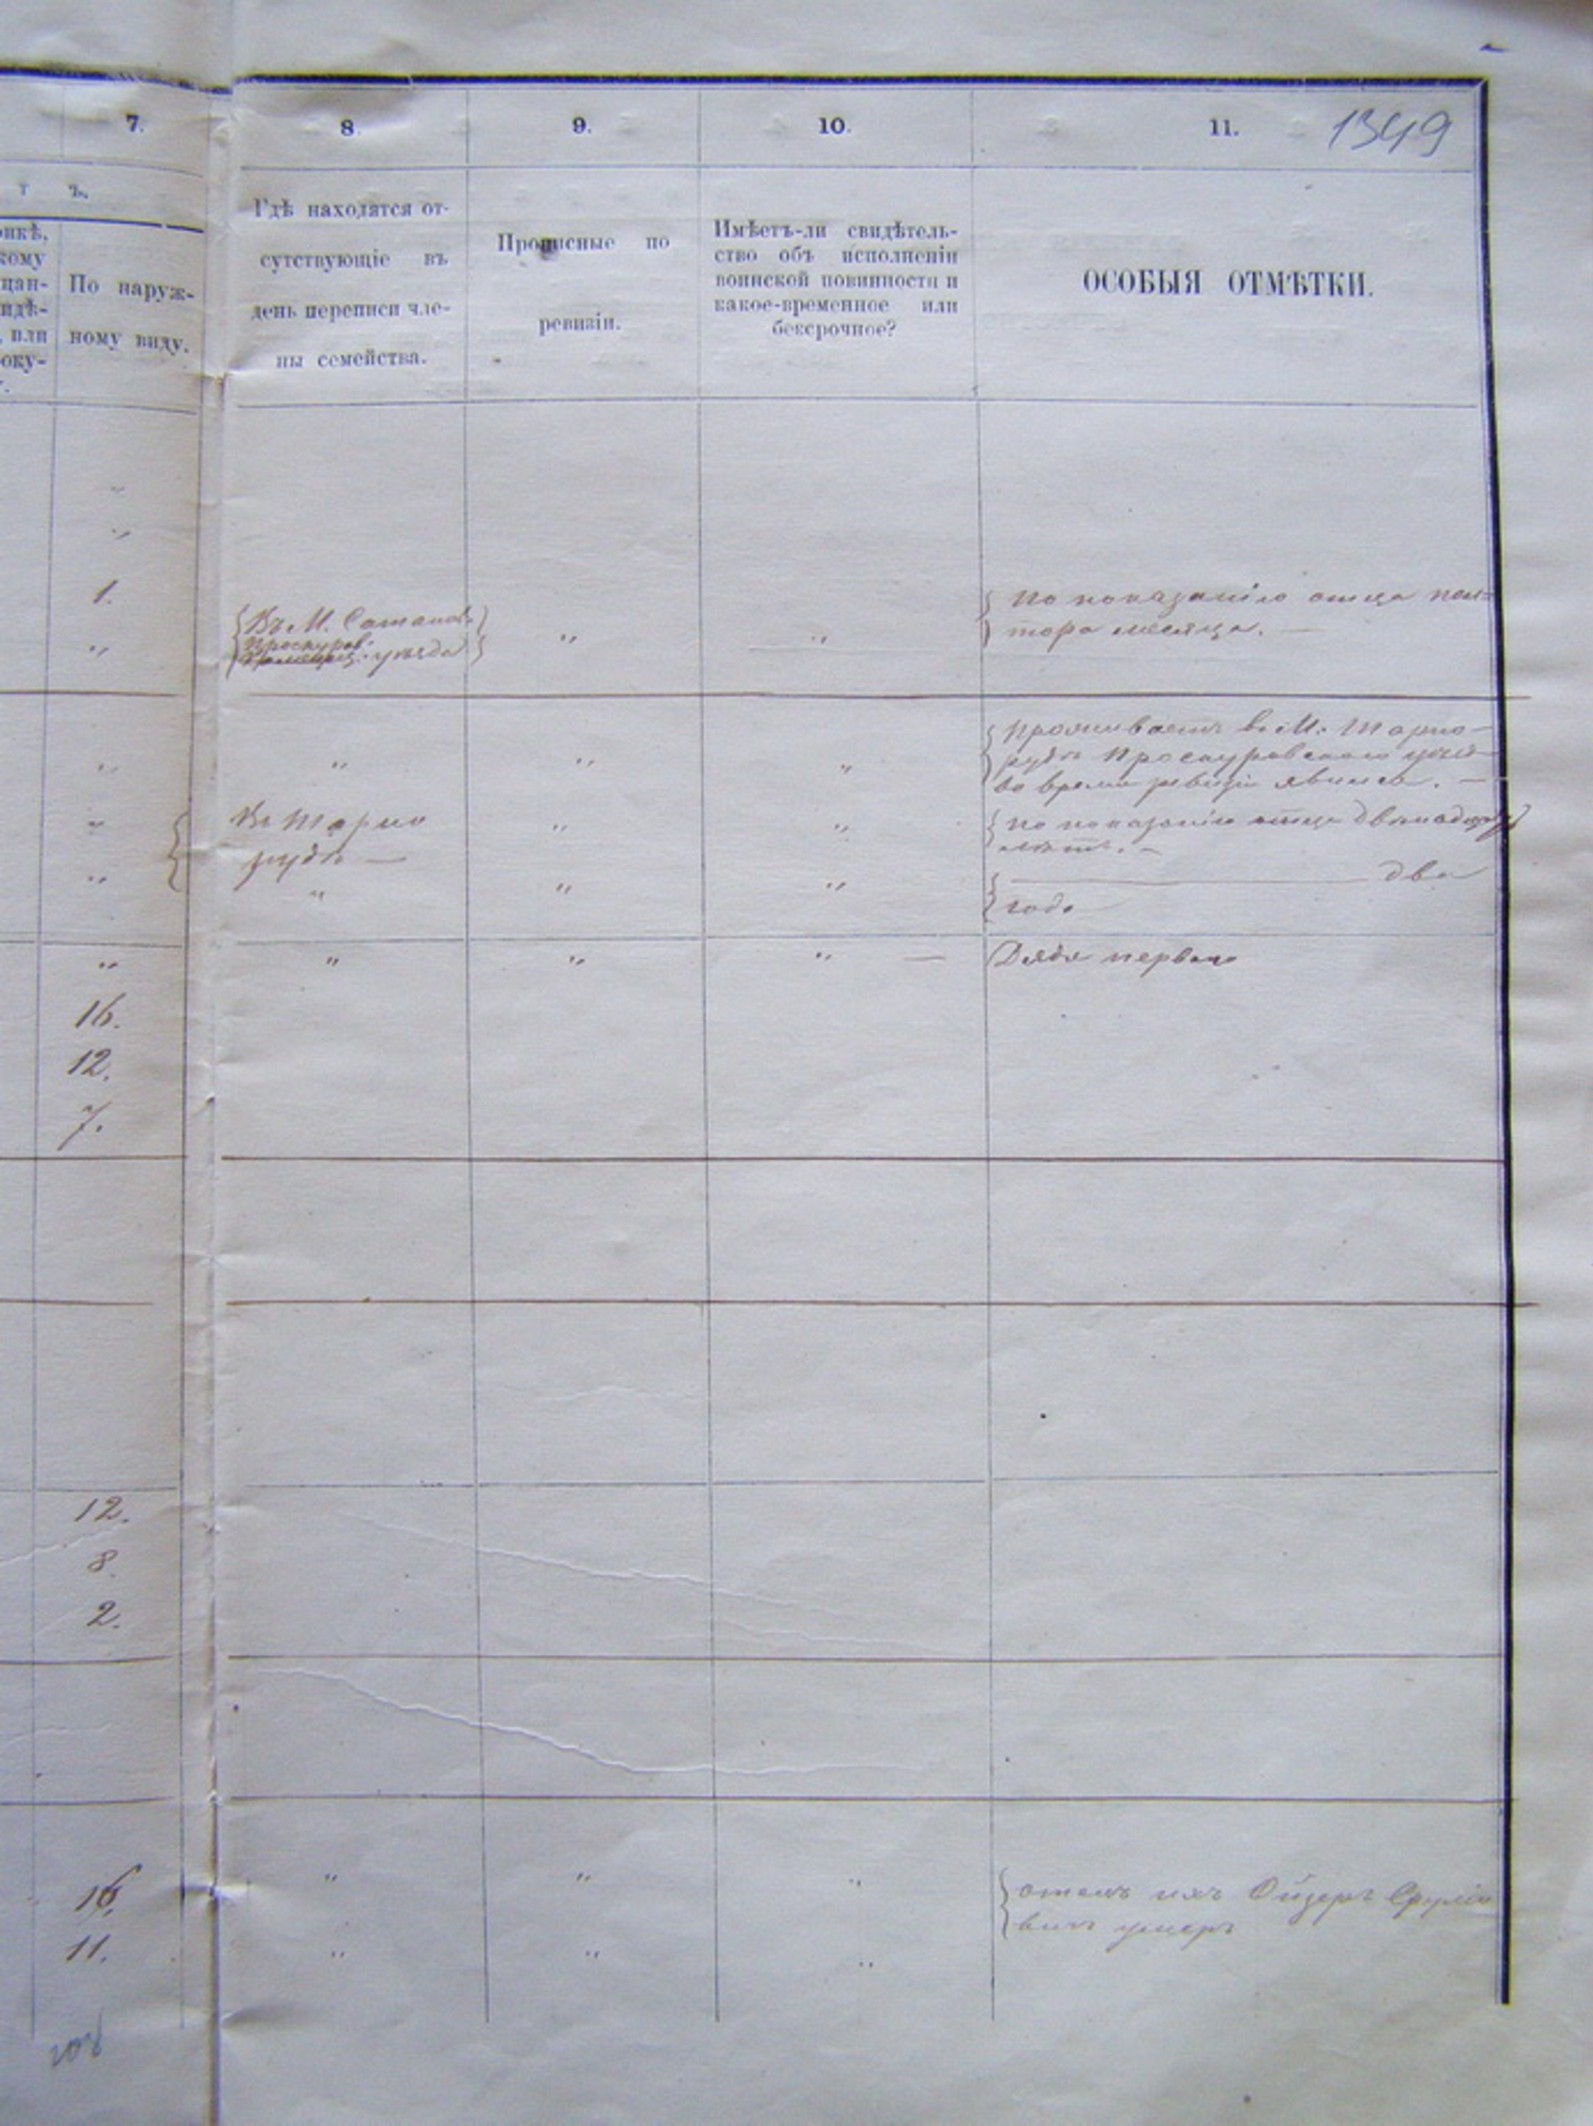 7.
8.
9.
10.
11.
1349
т ъ.
По наруж-
ному виду.
Гдѣ находятся от-
сутствующіе въ
день переписи чле-
ны семейства.
Прописные по
ревизіи.
Имѣетъ-ли свидѣтель-
ство объ исполненіи
воинской повинности и
какое-временное или
бексрочное?
ОСОБЫЯ ОТМѢТКИ.
„
„
1.
По показанію отца пол-
тора месяца. —
Въ М. Сатанов
Проскуров.
уѣзда
„ „ „
Проживаетъ въ М. Тарно-
рудѣ Проскуровскаго уѣзд
во время ревизіи явился. —
„ „ „ „
Въ Тарно
рудѣ —
„ „ „
По показанію отца двенадцать
лѣтъ. —
„ „ „ „
два
года
„ „ „ „ — Дядя перваго
16.
12.
7.
12.
8.
2.
16. „ „ „
отецъ ихъ Ойзеръ Сруліо
вичъ умеръ
11. „ „ „